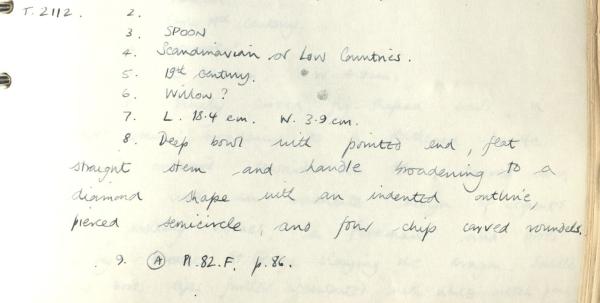 T. 2112.
2.
3. SPOON
4. Scandinavian or Low Countries.
5. 19th century.
6. Willow?
7. L. 18.4 cm. W. 3.9 cm.
8. Deep bowl with pointed end, flat
straight stem and handle broadening to a
diamond shape with an indented outline,
pierced semicircle, and four chip carved roundels.
9. Ⓐ Pl. 82. F. p. 86.